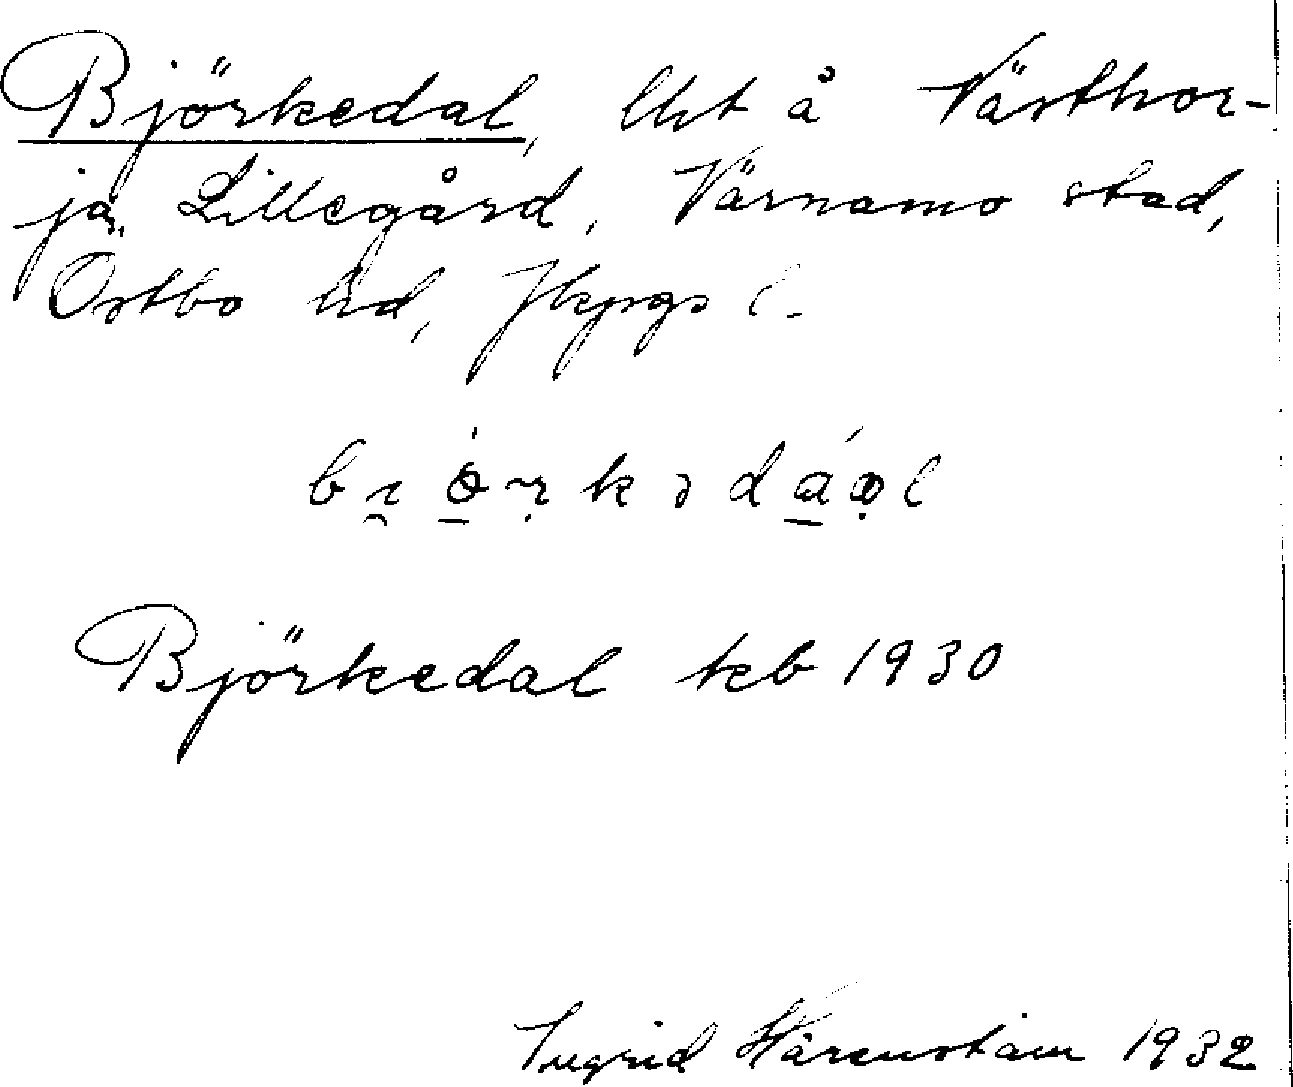 Björkedal, lht å Västhor-
ja Lillegård, Värnamo stad,
Östbo hd, Jkpgs l.
Björkedal keb 1930
Ingrid Härenstam 1932